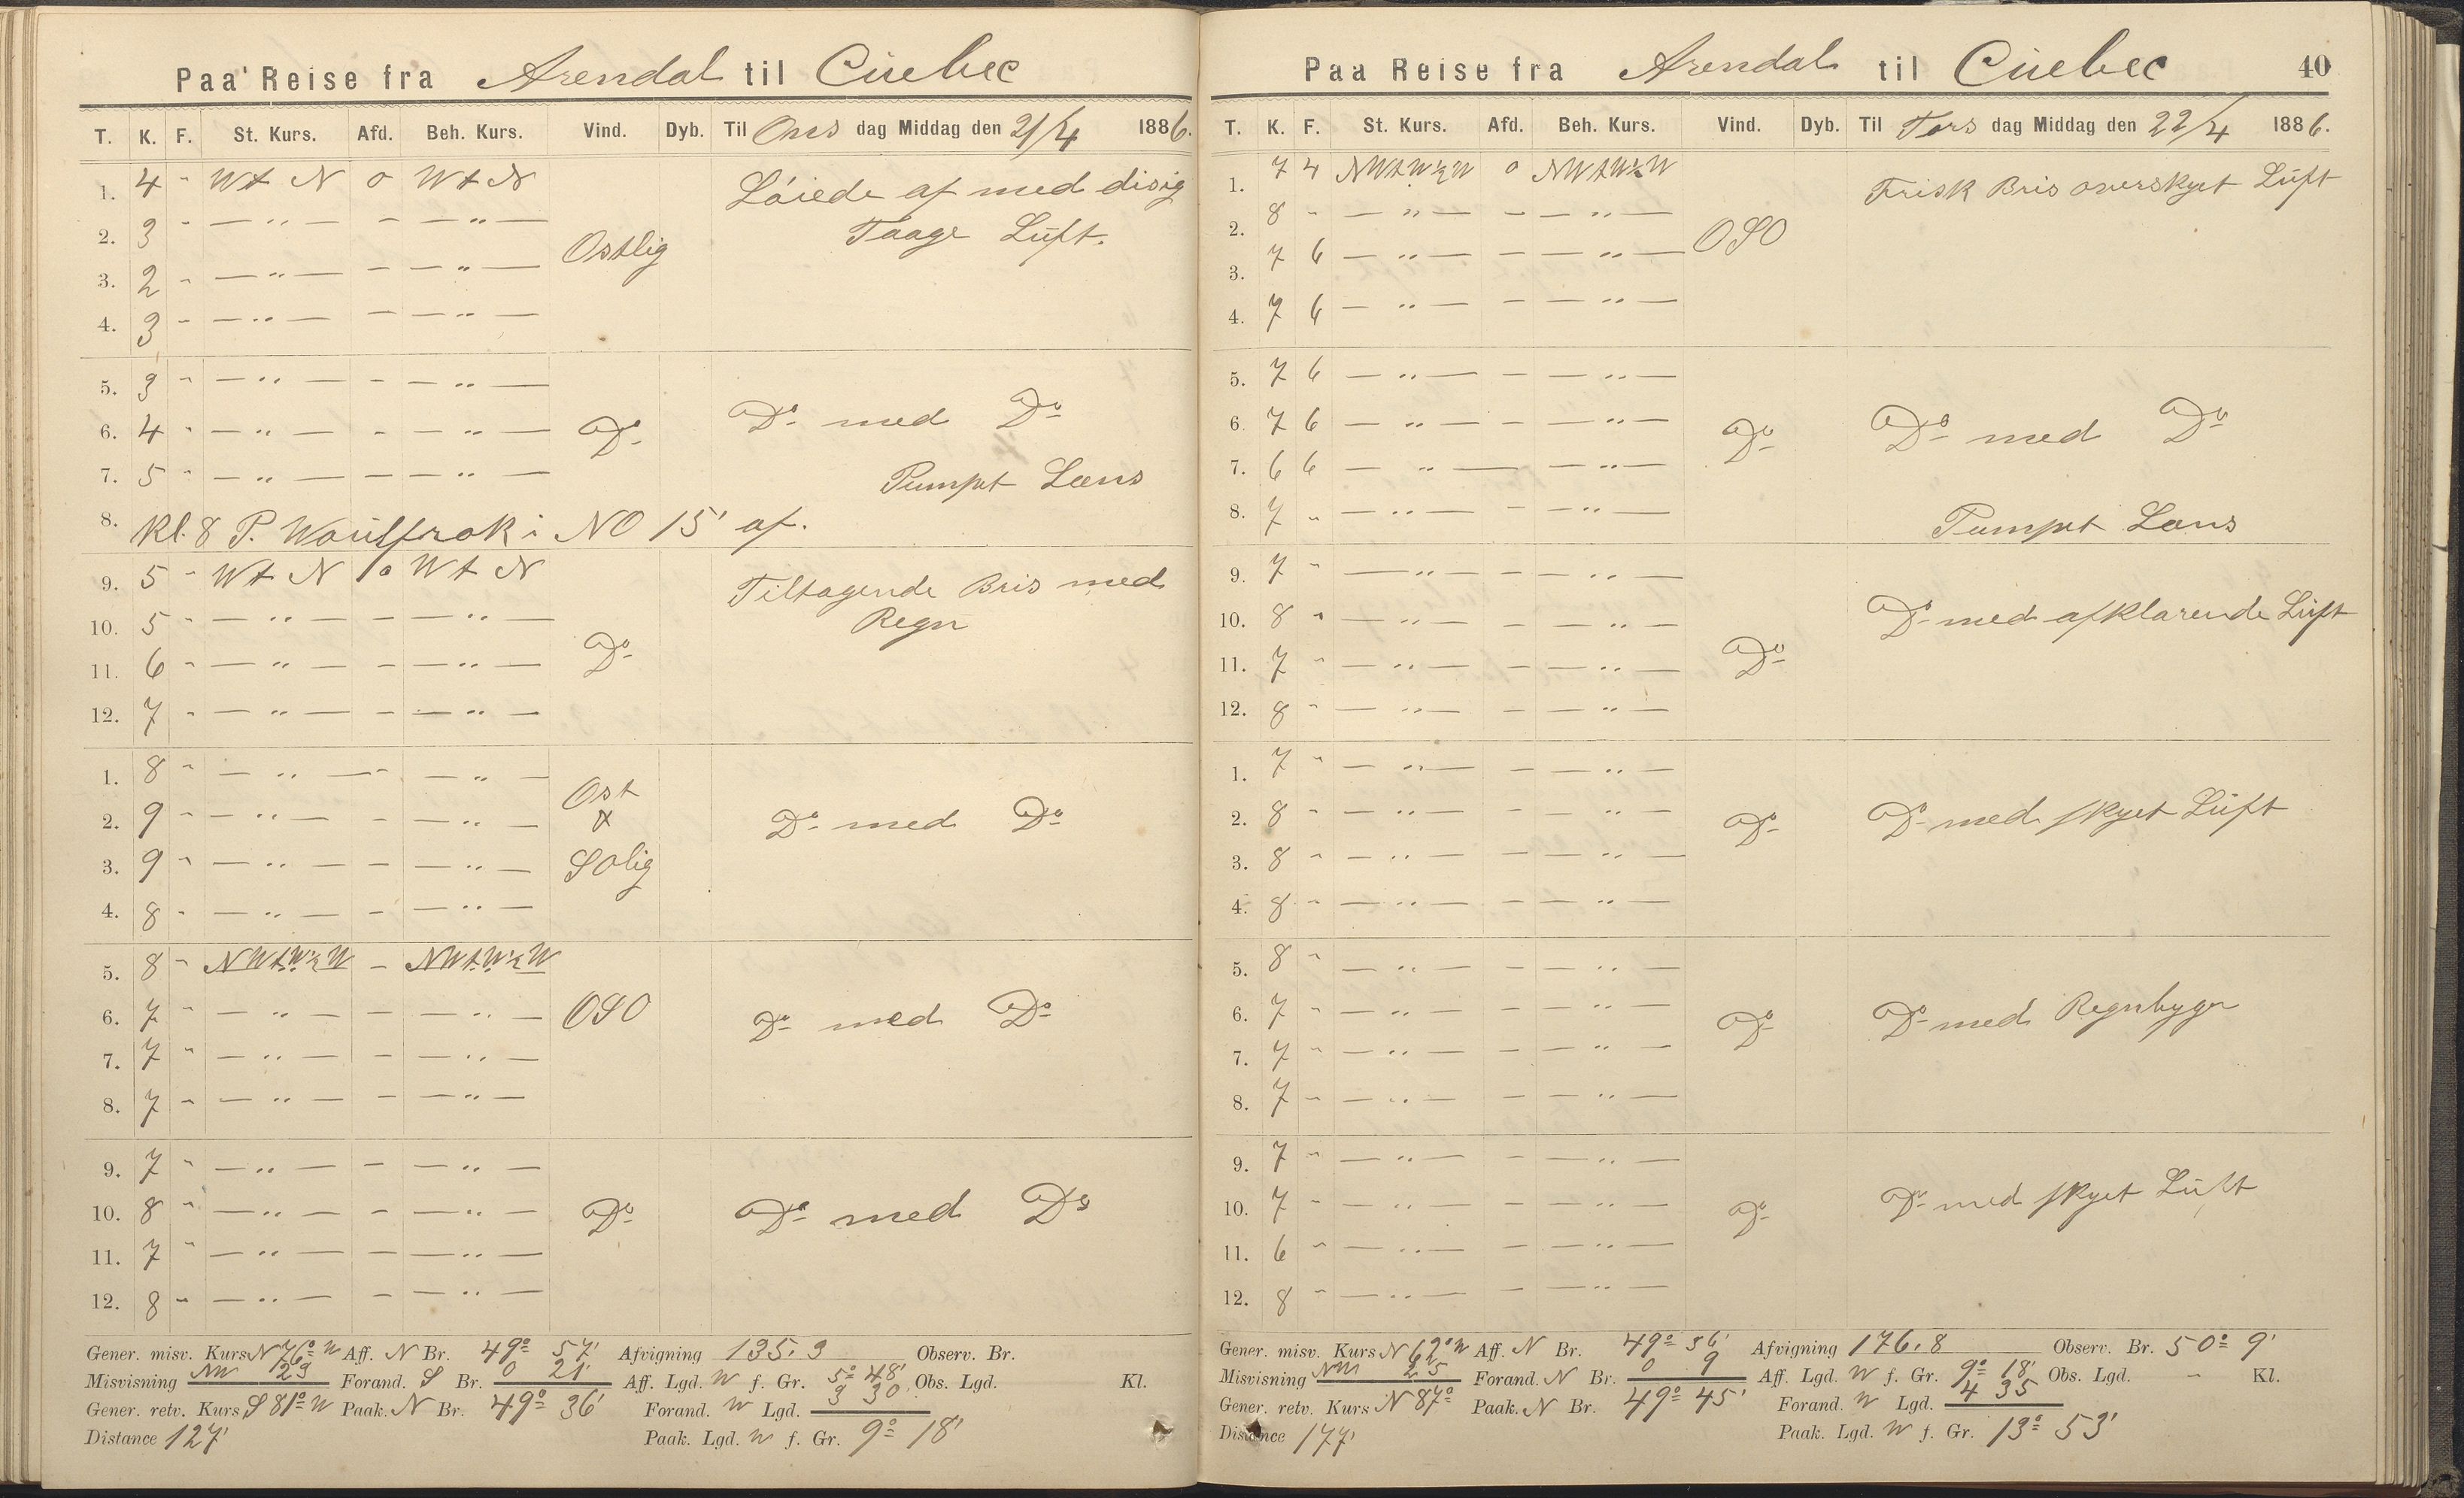 Paa' Reise fra Arendal til Cuebec
T. K. F. St. Kurs. Afd. Beh. Kurs. Vind. Dyb. Til Ons dag Middag den 21/4 1886.
1. 4 " Wt N o Wt N Løiede af med disig
2. 3 " — " — – — " — Ostlig Taage Luft.
3. 2 " — " — – — " —
4. 3 " — " — – — " —
5. 3 " — " — – — " —
6. 4 " — " — – — " — Do Do med Do
7. 5 " — " — – — " — Pumpet Læns
8. Kl. 8 P. i NO 15' af.
9. 5 " Wt N o Wt N Tiltagende Bris med
10. 5 " — " — – — " — Regn
11. 6 " — " — – — " — Do
12. 7 " — " — – — " —
1. 8 " — " — " — " — Ost
2. 9 " — " — – — " — Do med Do
3. 9 " — " — – — " — SOlig
4. 8 " — " — – — " —
5. 8 " NWtW½W – NWtW½W
6. 7 " — " — – — " — OSO Do med Do
7. 7 " — " — – — " —
8. 7 " — " — – — " —
9. 7 " — " — – — " —
10. 8 " — " — – — " — Do Do med Do
11. 7 " — " — – — " —
12. 8 " — " — – — " —
Gener. misv. Kurs N 76° W Aff. N Br. 49° 57' Afvigning 135.3 Observ. Br.
Misvisning NW 23 Forand. S Br. 0 21' Aff. Lgd. W f. Gr. 5° 48' Obs. Lgd. Kl.
Gener. retv. Kurs S 81° W Paak. N Br. 49° 36' Forand. W Lgd. 3 30
Distance 127' Paak. Lgd. W f. Gr. 9° 18'
Paa Reise fra Arendal til Cuebec 40
T. K. F. St. Kurs. Afd. Beh. Kurs. Vind. Dyb. Til Tors dag Middag den 22/4 1886.
1. 7 4 NWtW½W o NWtW½W Frisk Bris overskyet Luft
2. 8 " — " — – — " — OSO
3. 7 6 — " — – — " —
4. 7 6 — " — – — " —
5. 7 6 — " — – — " —
6. 7 6 — " — – — " — Do Do med Do
7. 6 6 — " — — " —
8. 7 " — " — – — " — Pumpet Læns
9. 7 " — " — – — " —
10. 8 " — " — – — " — Do med afklarende Luft
11. 7 " — " — – — " — Do
12. 8 " — " — – — " —
1. 7 " — " — – — " —
2. 8 " — " — – — " — Do Do med skyet Luft
3. 8 " — " — – — " —
4. 8 " — " — – — " —
5. 8 " — " — – — " —
6. 7 " — " — – — " — Do Do med Regnbyger
7. 7 " — " — – — " —
8. 7 " — " — – — " —
9. 7 " — " — – — " —
10. 7 " — " — – — " — Do Do med skyet Luft
11. 6 " — " — – — " —
12. 8 " — " — – — " —
Gener. misv. Kurs N 62° W Aff. N Br. 49° 36' Afvigning 176.8 Observ. Br. 50° 9'
Misvisning NW 25 Forand. N Br. 0 9 Aff. Lgd. W f. Gr. 9° 18' Obs. Lgd. – Kl.
Gener. retv. Kurs N 87° Paak. N Br. 49° 45' Forand. W Lgd. 4 35
Distance 177' Paak. Lgd. W f. Gr. 13° 53'